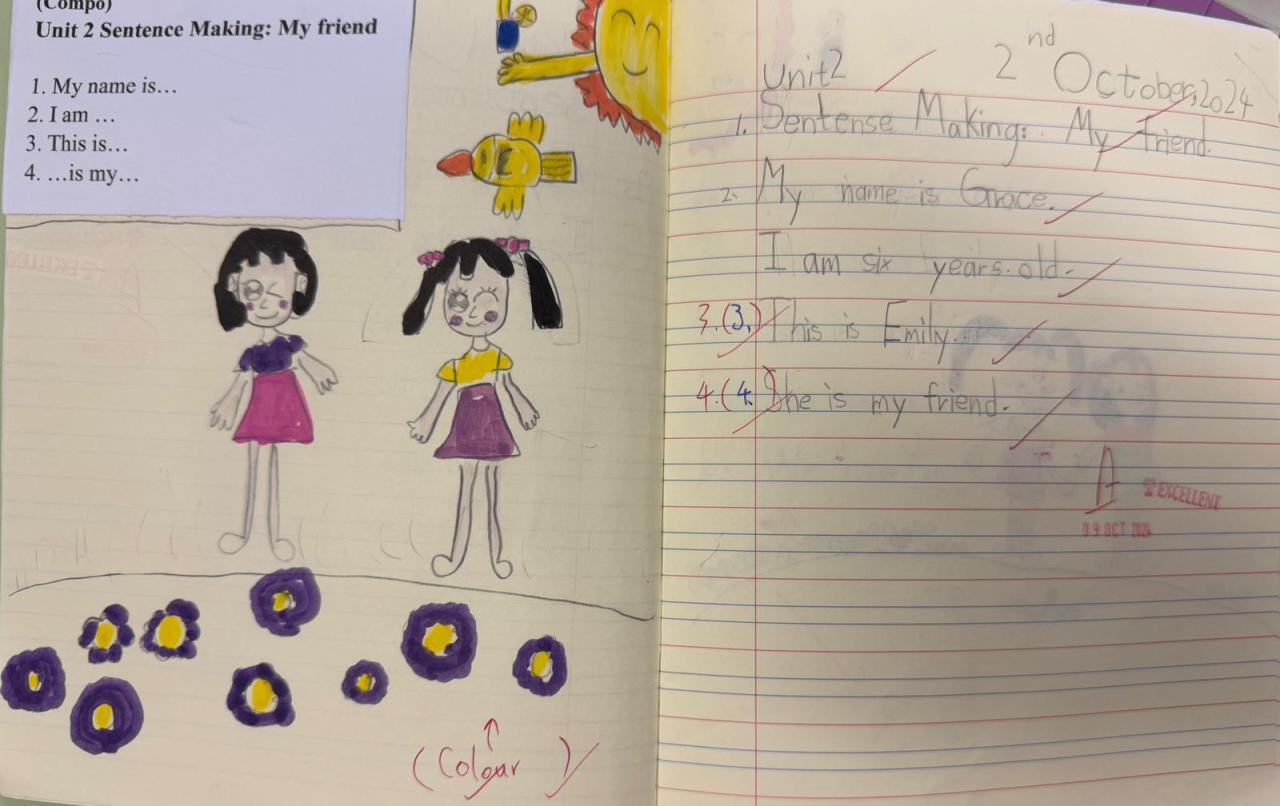 (Compo)
Unit 2 Sentence Making: My friend
1. My name is…
2. I am …
3. This is…
4. …is my…
(Colour)
2nd October, 2024
Unit2
1. Sentense Making: My friend.
2. My name is Grace.
I am six years old.
3.(3.) This is Emily.
4.(4.) She is my friend.
A
EXCELLENT
09 OCT 2024